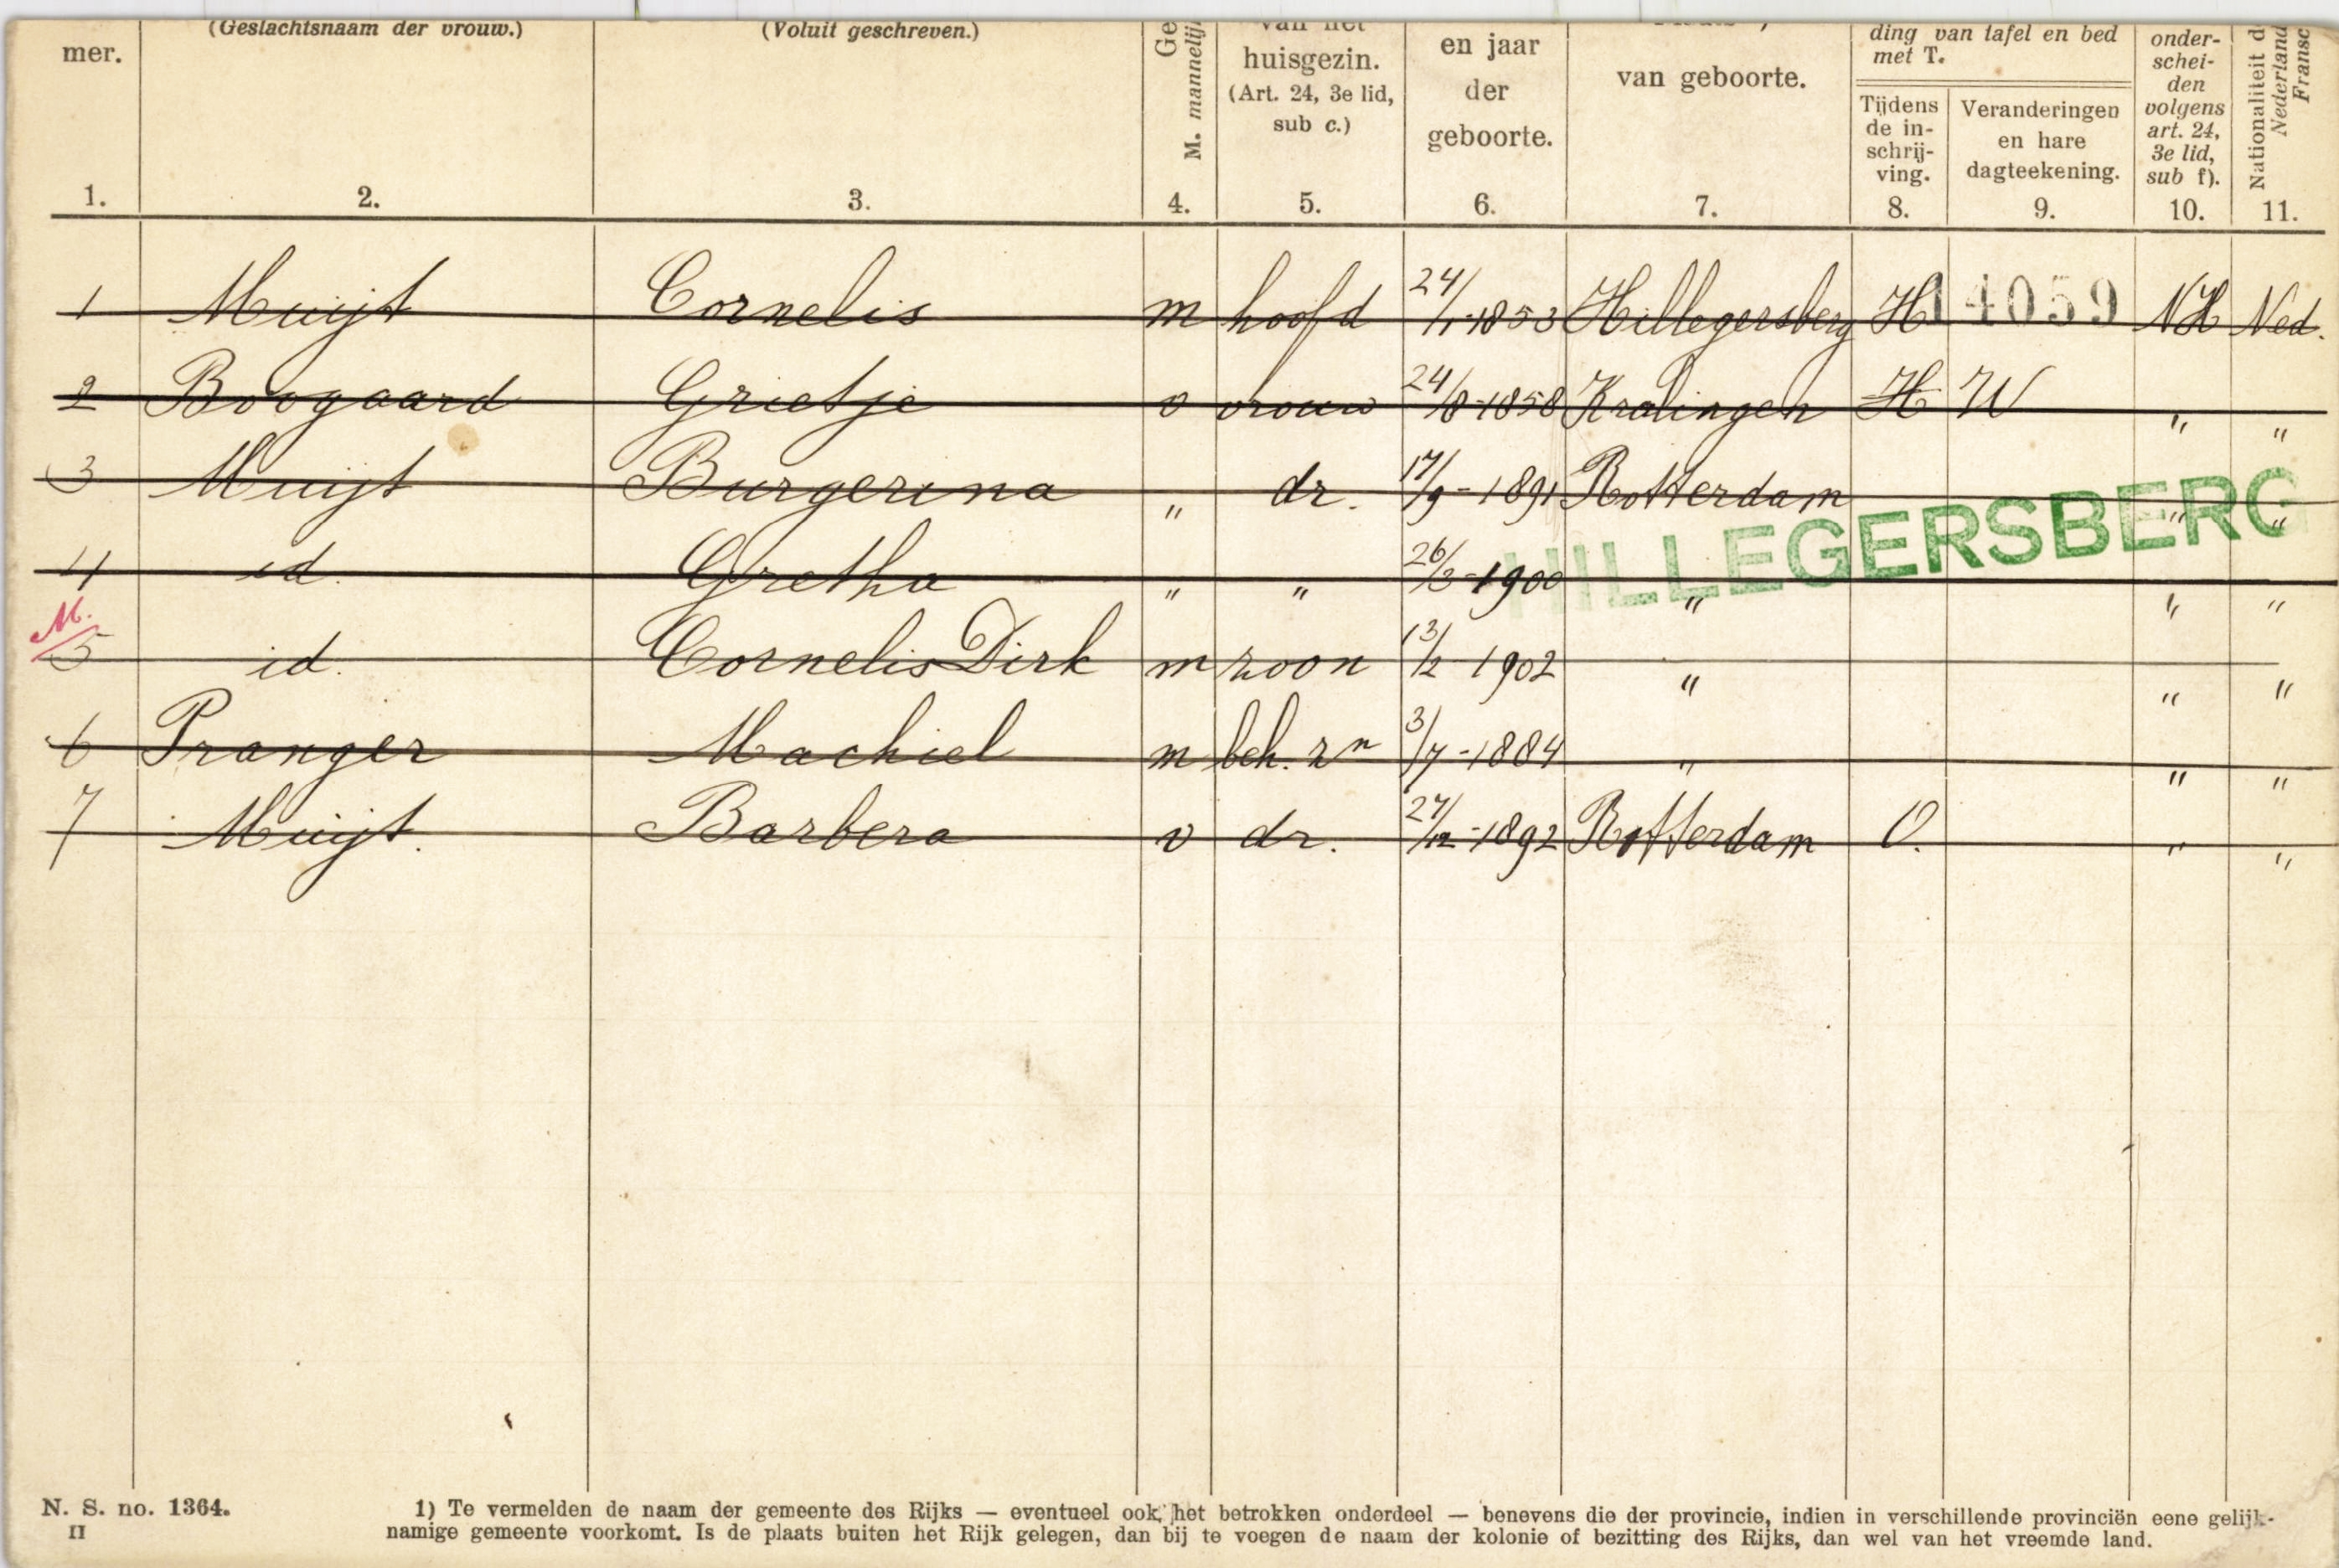 mer. (Geslachtsnaam der vrouw.) (Voluit geschreven.) M. mannelijk huisgezin. (Art. 24, 3e lid, sub c.) en jaar der geboorte. van geboorte. ding van tafel en bed met T. Tijdens de in- schrij- ving. Veranderingen en hare dagteekening. onder- schei- den volgens art. 24, 3e lid, sub f). Nationaliteit
1. 2. 3. 4. 5. 6. 7. 8. 9. 10. 11.
1 Muijt Cornelis m hoofd 24/1-1853 Hillegersberg H 14059 NH Ned.
2 Boogaard Grietje v vrouw 24/8-1858 Kralingen H W " "
3 Muijt Burgerina " dr. 17/9-1891 Rotterdam " "
HILLEGERSBERG
4 id. Gretha " " 26/3-1900 " " "
M.
5 id. Cornelis Dirk m zoon 13/2 1902 " " "
6 Pranger Machiel m beh. zn 3/7-1884 " " "
7 Muijt. Barbera v dr. 27/12-1892 Rotterdam O. " "
N. S. no. 1364.
II
1) Te vermelden de naam der gemeente des Rijks — eventueel ook het betrokken onderdeel — benevens die der provincie, indien in verschillende provinciën eene gelijk-
namige gemeente voorkomt. Is de plaats buiten het Rijk gelegen, dan bij te voegen de naam der kolonie of bezitting des Rijks, dan wel van het vreemde land.